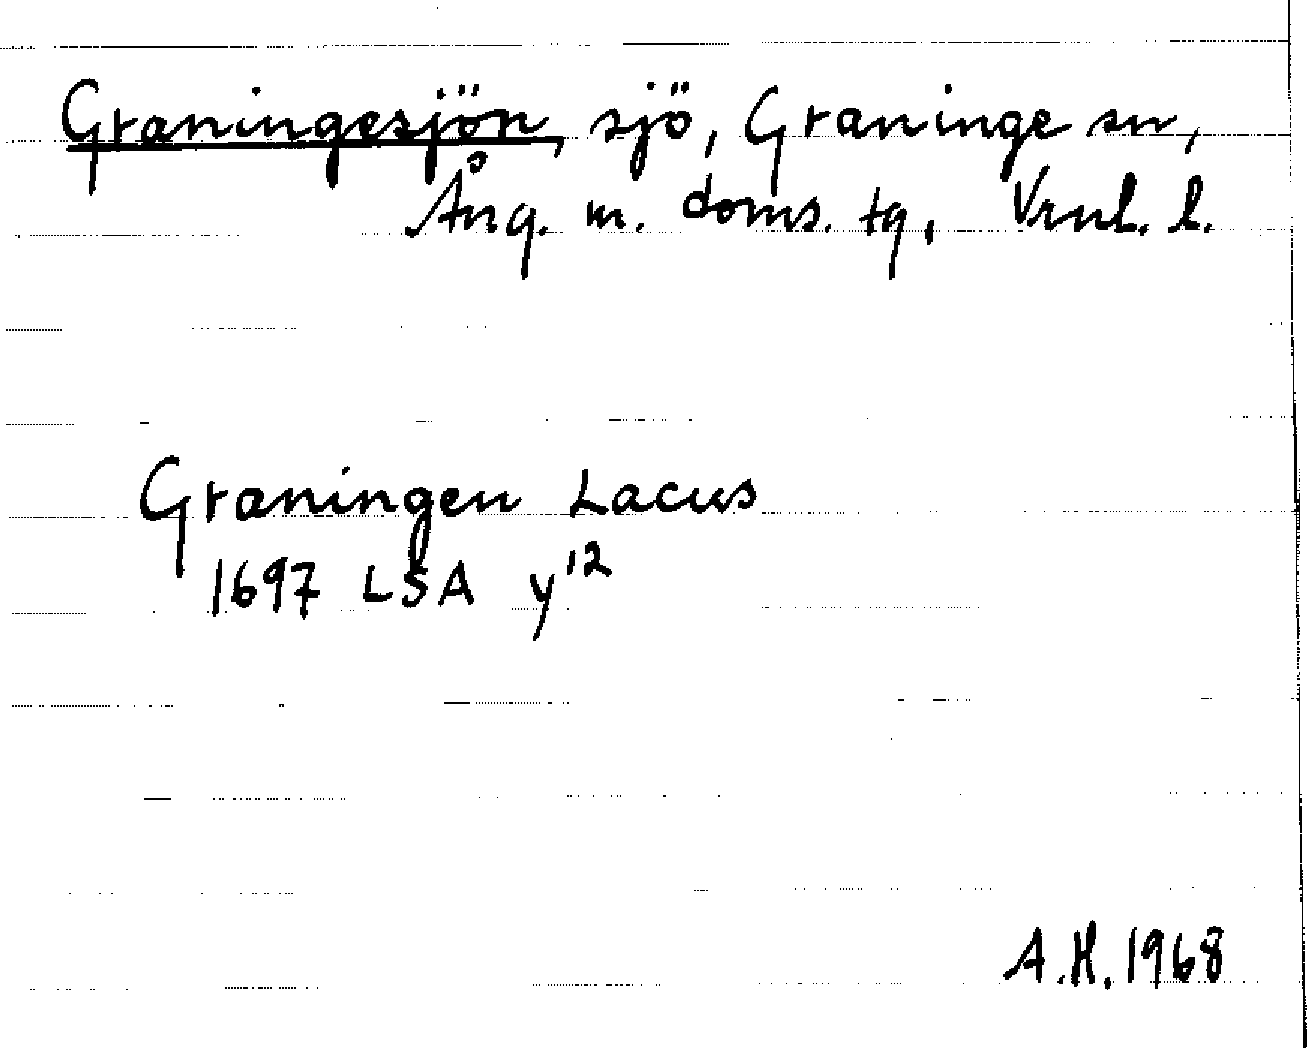 Graningesjön, sjö, Graninge sn,
Ång. m. doms. tg, Vrnl. l.
Graningen Lacus
1697 LSA y¹²
A.H. 1968